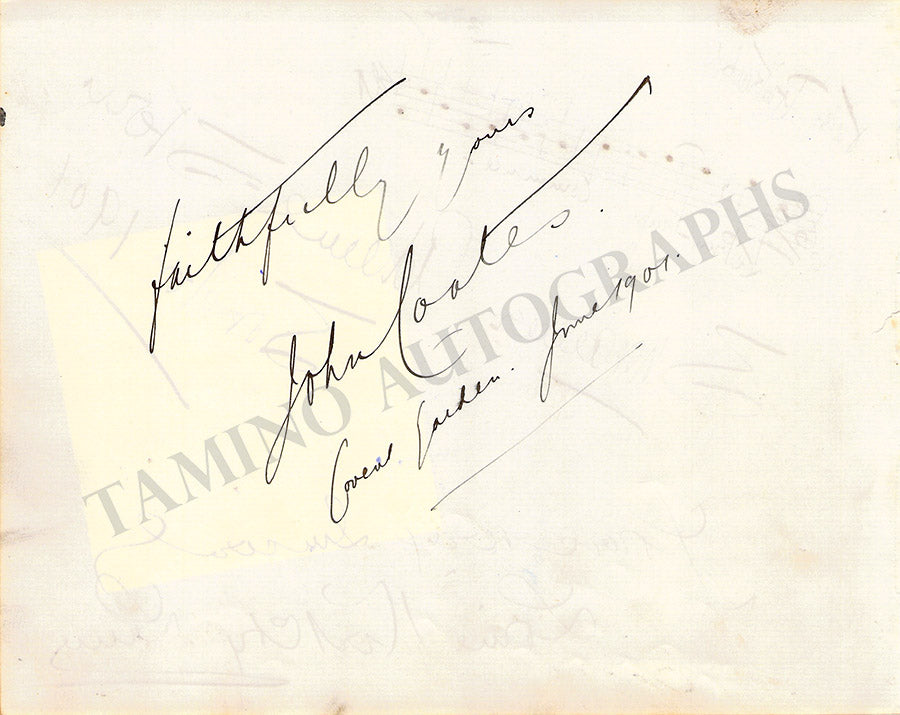 faithfully yours
John Coates.
Covent Garden. June 1901.
TAMINO AUTOGRAPHS